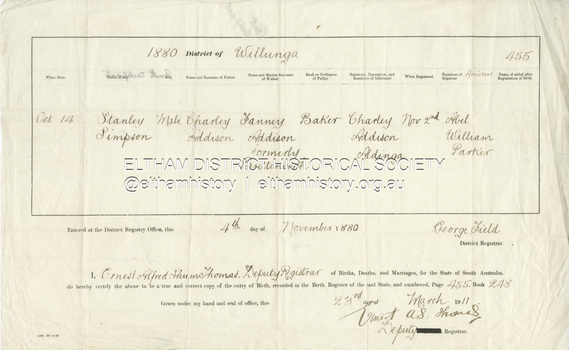 1880 District of Willunga 455
When Born Name and Surname of Father Name and Maiden Surname of Mother Rank or Profession of Father Signature, Description, and Residence of Informant When Registered Signature of Assistant Registrar Name, if added after Registration of Birth
Oct 14 Stanley Male Charley Fanny Baker Charley Nov 2nd Abel
Simpson Addison Addison Addison William
formerly Aldinga Parker
ELTHAM DISTRICT HISTORICAL SOCIETY
@elthamhistory | elthamhistory.org.au
Entered at the District Registry Office, this 4th day of November 1880 George Field
District Registrar.
I, Ernest Alfred Thomas, Deputy Registrar of Births, Deaths, and Marriages, for the State of South Australia,
do hereby certify the above to be a true and correct copy of the entry of Birth, recorded in the Birth Register of the said State, and numbered, Page 455, Book 248
Given under my hand and seal of office, this 23rd day of March 1911
Ernest A.S. Thomas
Deputy Registrar.